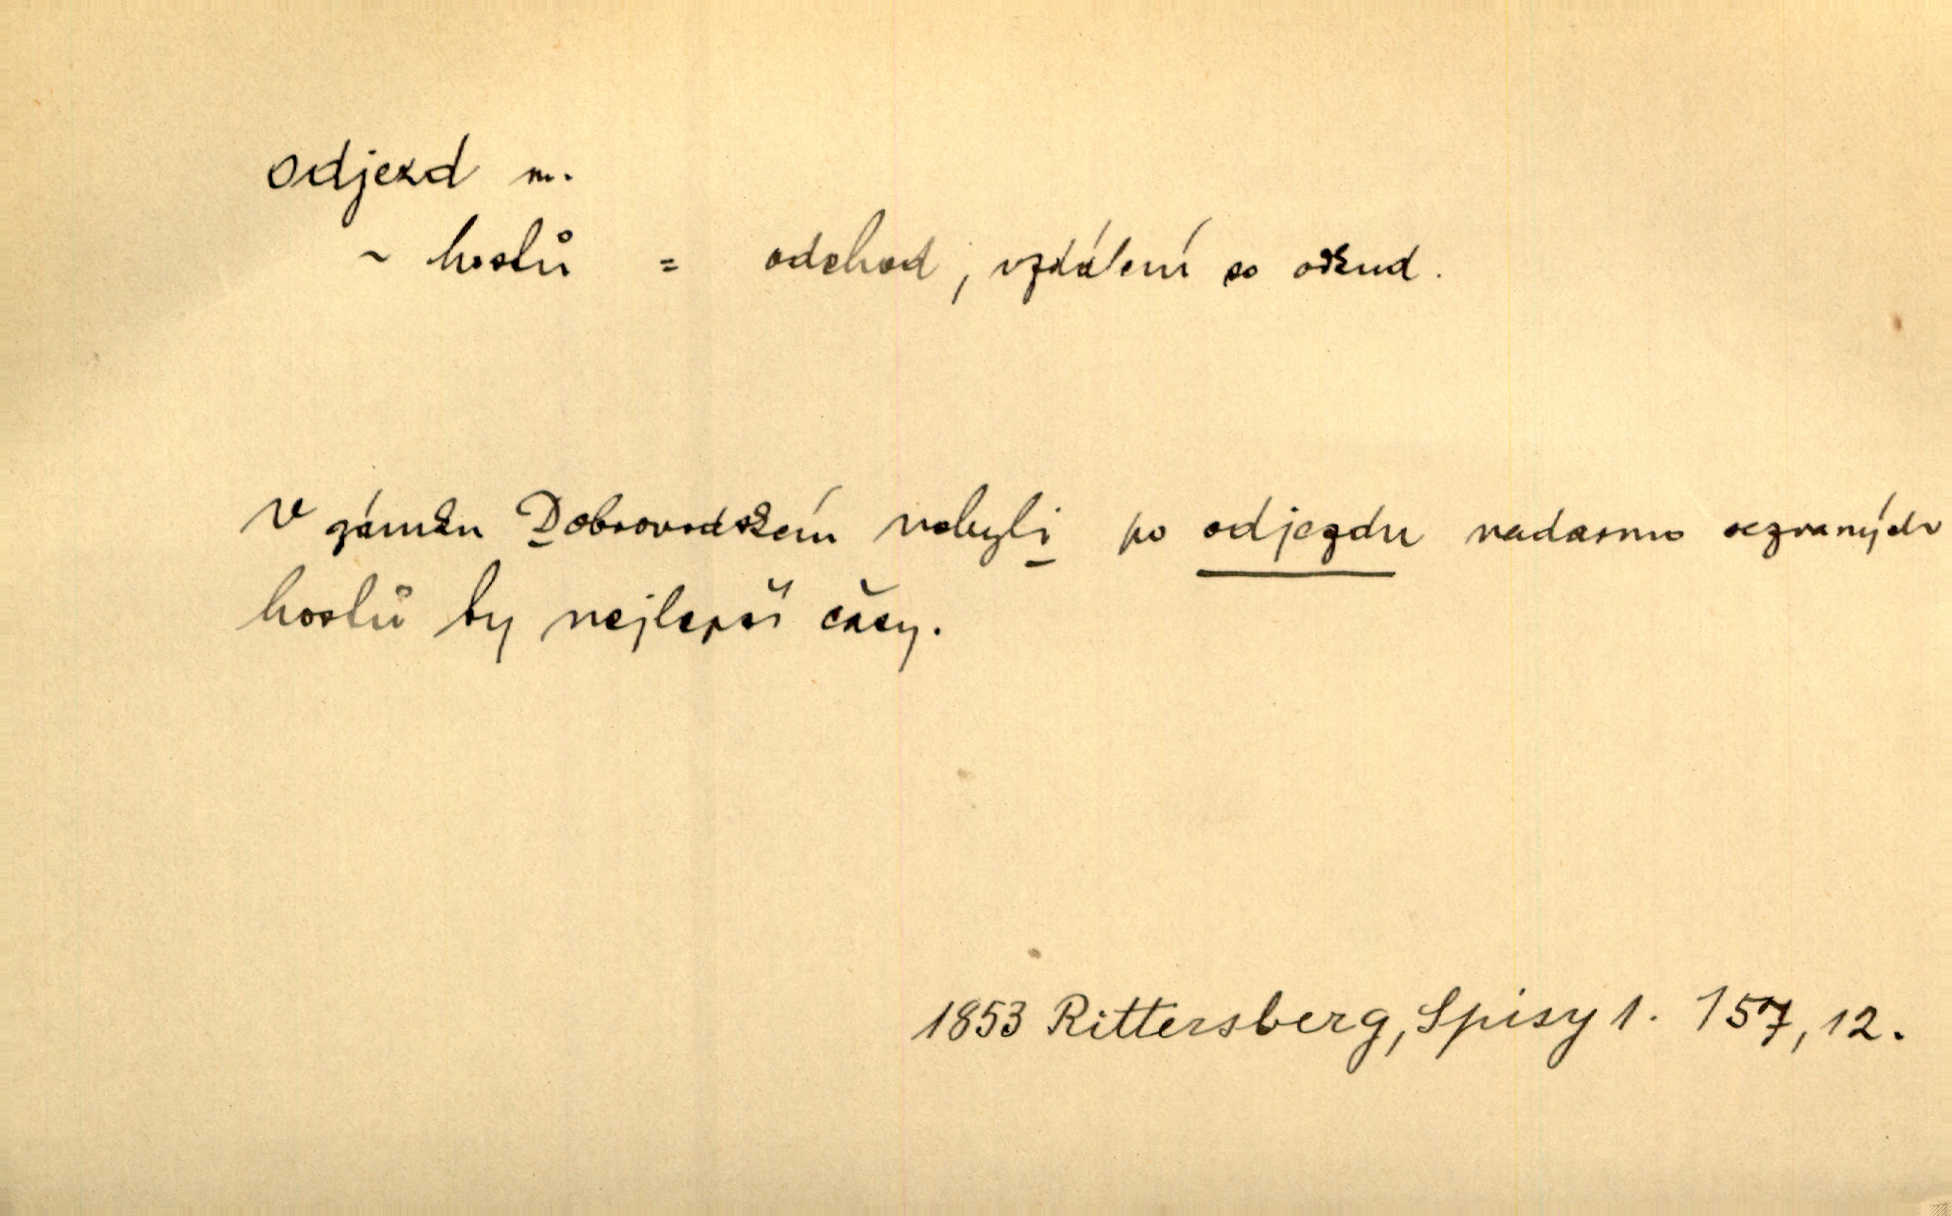 odjezd m.
~ hostů = odchod, vzdálení se odkud.
V zámku Dobrovodském nebyli po odjezdu nadarmo sezvaných
hostů by nejlepší časy.
1853 Rittersberg, Spisy 1. 157, 12.